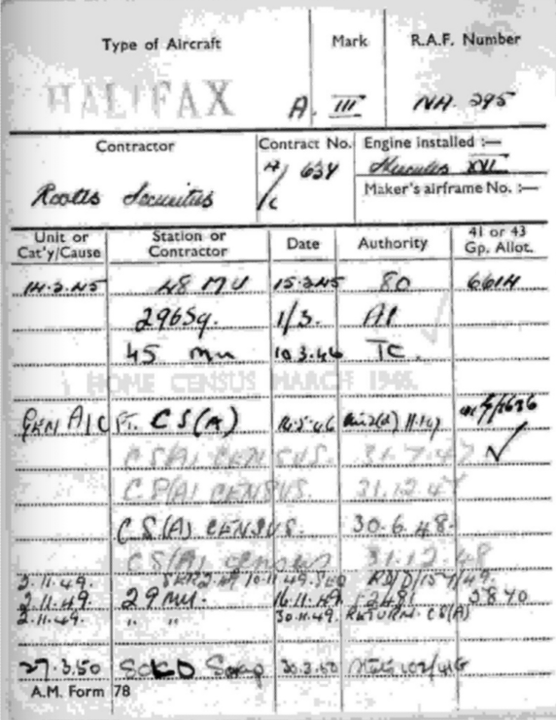 Type of Aircraft Mark R.A.F. Number
HALIFAX A. III NA. 295
Contractor Contract No. Engine installed :—
Rootes Securities A/C/ 637 Hercules XVI
Maker's airframe No. :—
Unit or Cat'y/Cause Station or Contractor Date Authority 41 or 43 Gp. Allot.
14.2.45 48 MU 15.2.45 80 6614
296 Sq. 1/3. A1
45 mu 10.3.46 TC.
HOME CENSUS MARCH 1946.
GEN A/C Ft. CS(A) 16.5.46
C S(A) CENSUS. 31.7.47 ✓
C.S(A) CENSUS. 31.12.47
C S (A) CENSUS 30.6.48.
CS(A) CENSUS 31.12.48
2.11.49. 10.11.49.
2.11.49. 29 MU. 16.11.49. 3840
2.11.49. " " 30.11.49. RETURN. CS(A)
27.3.50 SOLD Scrap 30.3.50
A.M. Form 78